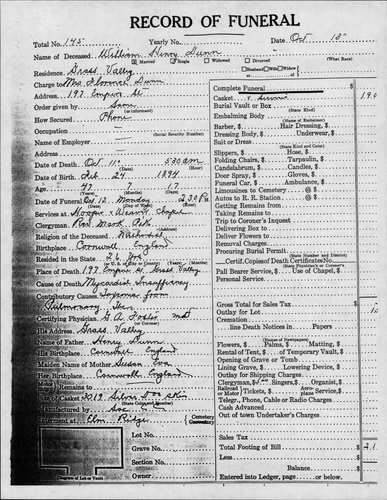 RECORD OF FUNERAL
Total No. 145 Yearly No. Date Oct 13
Name of Deceased William Henry Dunn
Married Single Widowed Divorced (What Race)
Residence Grass Valley Husband Wife Widow
Charge to Mrs Florence Dunn
Address 197 Empire St
Order given by Same
How Secured Phone
Occupation
(Social Security Number)
Name of Employer
Address
Date of Death Oct 11 5:30 am
Date of Birth Feb 24 1894
Age 47 7 17
(Years) (Months) (Days)
Date of Funeral Oct 13 Monday 2:30 P
Services at Hooper & Weaver Chapel
Clergyman Rev Ward
Religion of the Deceased
Birthplace Cornwall England
Resided in the State 26 Yrs
Place of Death 197 Empire St Grass Valley
Cause of Death Myocardial Insufficiency
Contributory Causes from
Pulmonary
Certifying Physician G A Foster MD
(or Coroner)
His Address Grass Valley
Name of Father Henry Dunn
His Birthplace Cornwall England
Maiden Name of Mother Susan
Her Birthplace Cornwall England
Remains to
Size of Casket
Manufactured by
Interment at Elm Ridge Cemetery
Lot No.
Grave No.
Section No.
Owner
Diagram of Lot or Vault
Complete Funeral $
Casket & Service
Burial Vault or Box
(State Kind)
Embalming Body
(Name of Embalmer)
Barber, $ Hair Dressing, $
Dressing Body, $ Underwear, $
Suit or Dress
(State Kind and Color)
Slippers, $ Hose, $
Folding Chairs, $ Tarpaulin, $
Candelabrum, $ Candles, $
Door Spray, $ Gloves, $
Funeral Car, $ Ambulance, $
Limousines to Cemetery @ $
Autos to R. R. Station @ $
Getting Remains from
Taking Remains to
Trip to Coroner's Inquest
Delivering Box to
Deliver Flowers to
Removal Charges
Procuring Burial Permit
(State Number and District)
Certif. Copies of Death Certificates No.
Pall Bearer Service, $ Use of Chapel, $
Personal Service
Gross Total for Sales Tax $
Outlay for Lot
Cremation
line Death Notices in Papers
(Names of Newspapers)
Flowers, $ Palms, $ Matting, $
Rental of Tent, $ of Temporary Vault, $
Opening of Grave or Tomb
Lining Grave, $ Lowering Device, $
Outlay for Shipping Charges
Clergyman, $ Singers, $ Organist, $
Railroad Tickets, $ Aeroplane Service, $
Telegr., Phone, Cable or Radio Charges
Cash Advanced
Out of town Undertaker's Charges
Sales Tax
Total Footing of Bill $
Less
Balance $
Entered into Ledger, page or below.